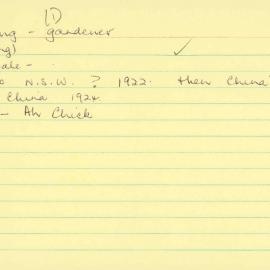 (1)
ng - gardener
ng)
ale -
o N.S.W. ? 1922. then China
China 1924.
- Ah Chick